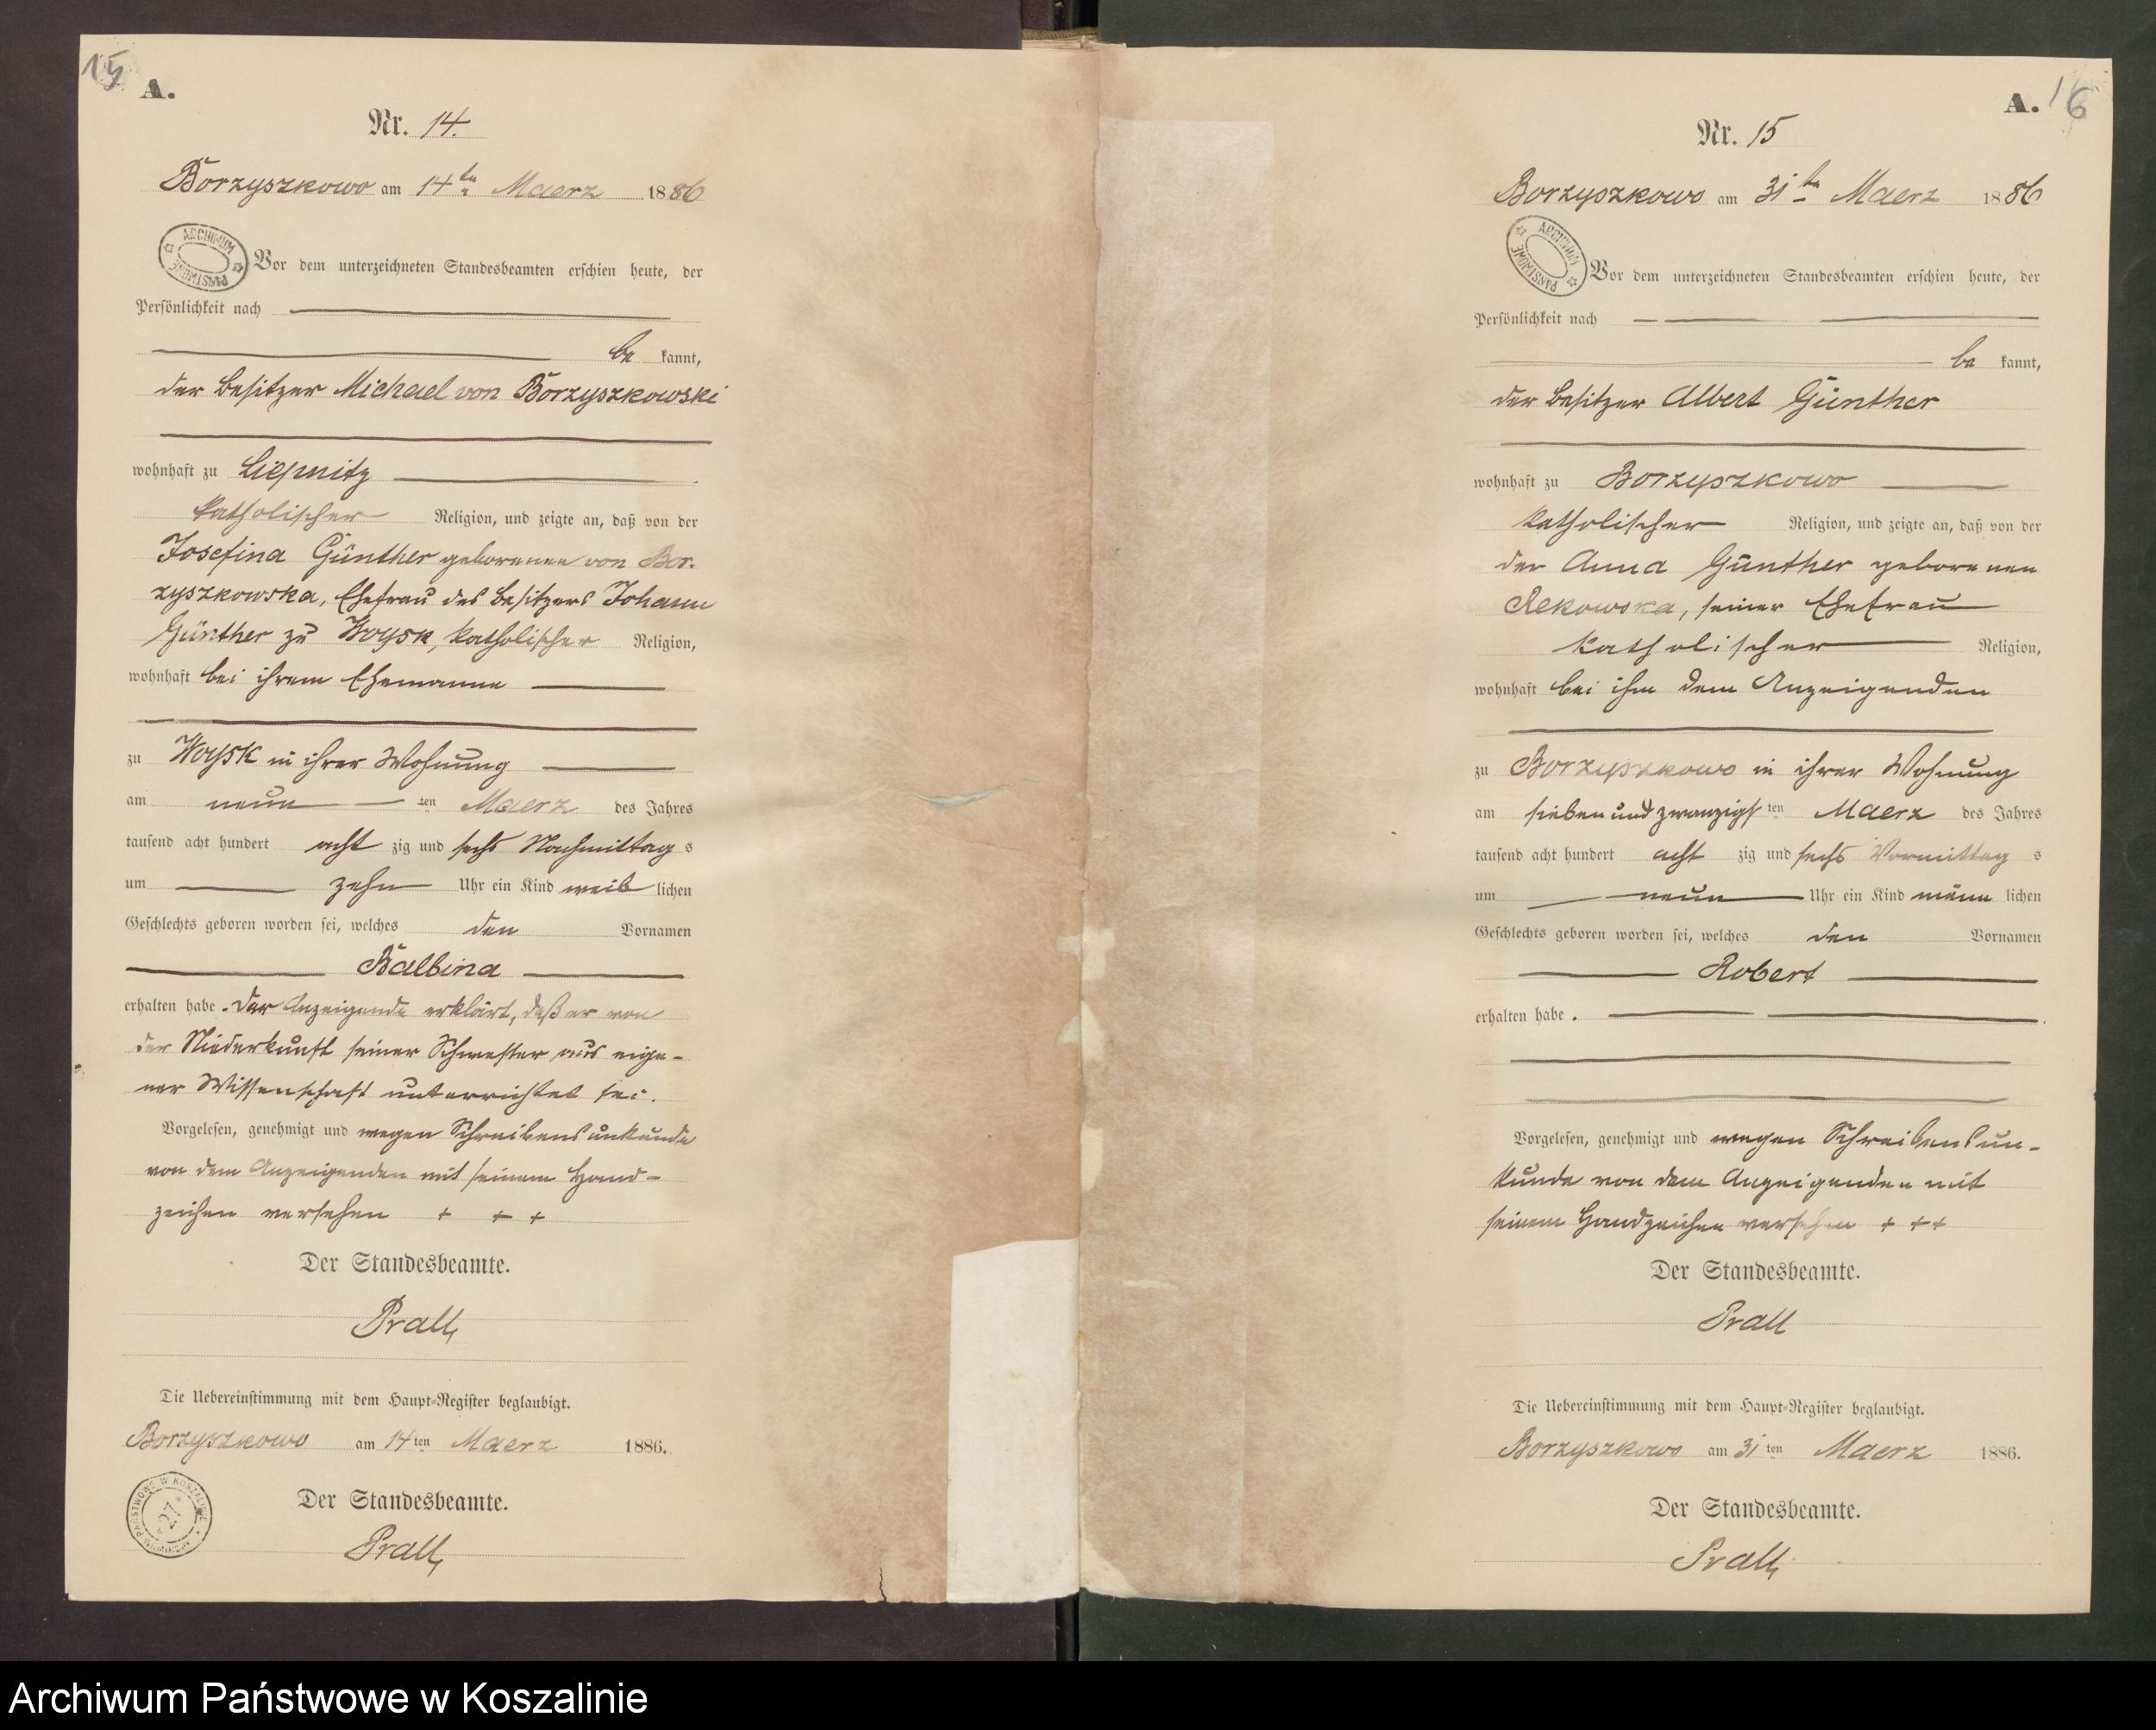 15
A.
Nr. 14.
Borzyszkowo am 14ten Maerz 1886
ARCHIWUM PAŃSTWOWE
Vor dem unterzeichneten Standesbeamten erschien heute, der
Persönlichkeit nach
be kannt,
der Besitzer Michael von Borzyszkowski
wohnhaft zu Liepnitz
katholischer Religion, und zeigte an, daß von der
Josefina Günther geborenen von Bor-
zyszkowska, Ehefrau des Besitzers Johann
Günther zu Woysk, katholischer Religion,
wohnhaft bei ihrem Ehemanne
zu Woysk in ihrer Wohnung
am neun ten Maerz des Jahres
tausend acht hundert acht zig und sechs Nachmittag s
um zehn Uhr ein Kind weib lichen
Geschlechts geboren worden sei, welches den Vornamen
Balbina
erhalten habe. Der Anzeigende erklärt, daß er von
der Niederkunft seiner Schwester aus eige-
ner Wissenschaft unterrichtet sei.
Vorgelesen, genehmigt und wegen Schreibensunkunde
von dem Anzeigenden mit seinem Hand-
zeichen versehen + + +
Der Standesbeamte.
Prall
Die Uebereinstimmung mit dem Haupt-Register beglaubigt.
Borzyszkowo am 14ten Maerz 1886.
ARCHIWUM PAŃSTWOWE W KOSZALINIE
27
Der Standesbeamte.
Prall
A. 16
Nr. 15
Borzyszkowo am 31ten Maerz 1886
ARCHIWUM PAŃSTWOWE
Vor dem unterzeichneten Standesbeamten erschien heute, der
Persönlichkeit nach
be kannt,
der Besitzer Albert Günther
wohnhaft zu Borzyszkowo
katholischer Religion, und zeigte an, daß von der
der Anna Günther geborenen
Rekowska, seiner Ehefrau
katholischer Religion,
wohnhaft bei ihm dem Anzeigenden
zu Borzyszkowo in ihrer Wohnung
am siebenundzwanzigsten Maerz des Jahres
tausend acht hundert acht zig und sechs Vormittag s
um neun Uhr ein Kind männ lichen
Geschlechts geboren worden sei, welches den Vornamen
Robert
erhalten habe.
Vorgelesen, genehmigt und wegen Schreibensun-
kunde von dem Anzeigenden mit
seinem Handzeichen versehen + + +
Der Standesbeamte.
Prall
Die Uebereinstimmung mit dem Haupt-Register beglaubigt.
Borzyszkowo am 31ten Maerz 1886.
Der Standesbeamte.
Prall
Archiwum Państwowe w Koszalinie